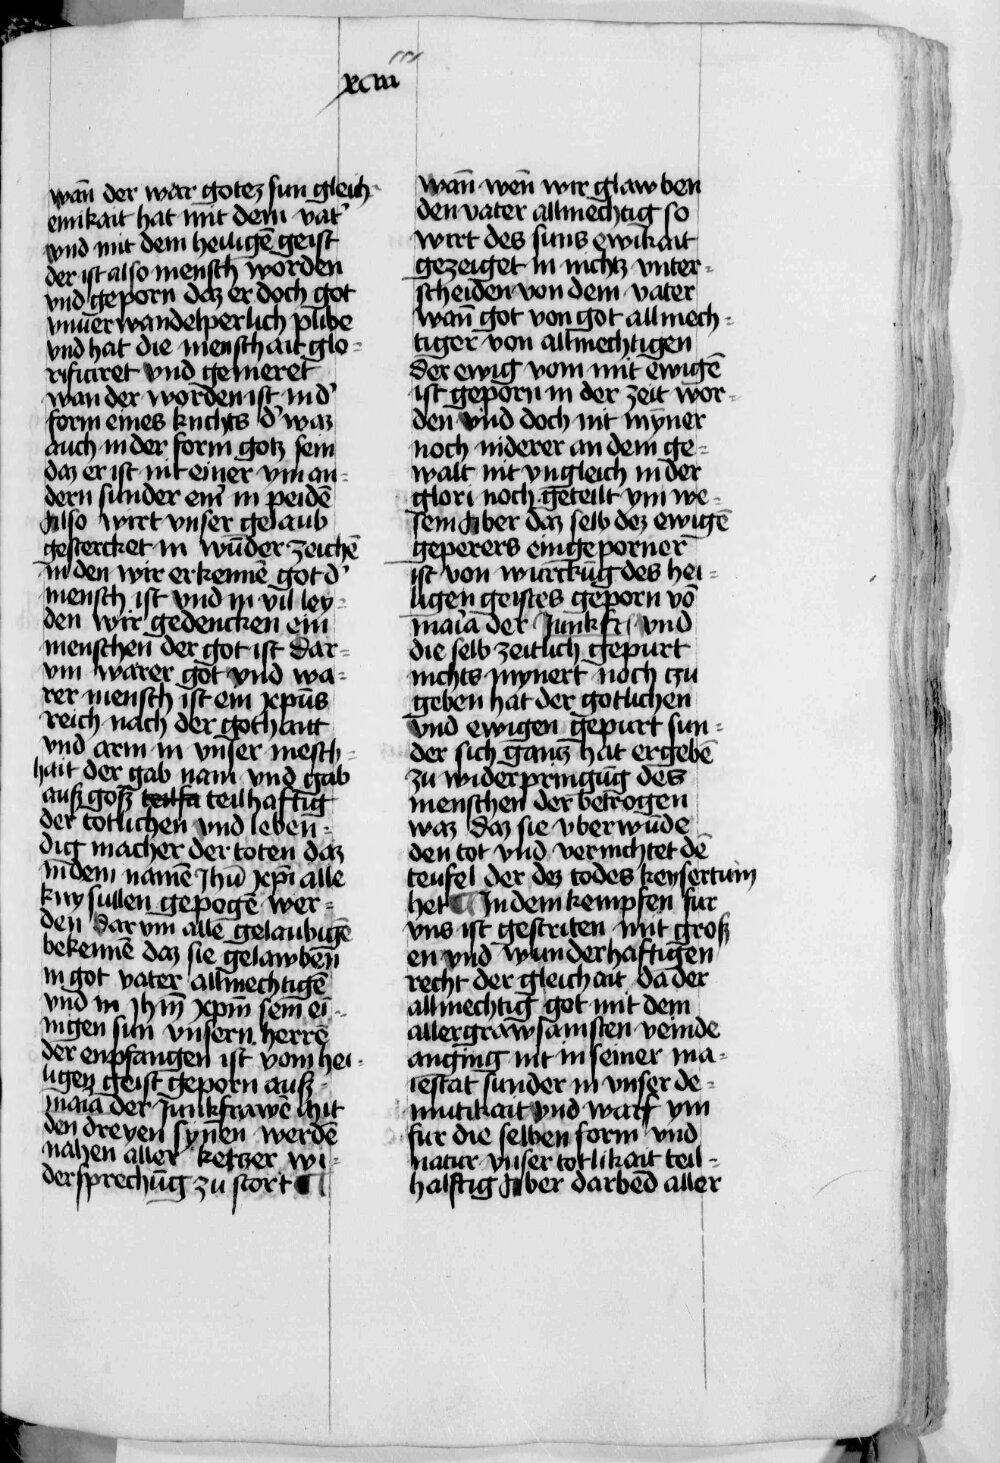 xciiii
wan̄ der war gotez sun gleich
emikait hat mit dem vat'
vnd mit dem heiligē geist
der ist also mensch worden
vnd geporn daz er doch got
vnuerwandelperlich plibe
vnd hat die menschait glo=
rificiret vnd gemeret
wan der worden ist in d'
form eines knichts d' waz
auch in der form gotz sein
daz er ist nit einer vm an=
dern sunder ein in peidē
Also wirt vnser gelaub
gestercket in wūder zeichē
in den wir erkennē got d'
mensch ist vnd in vil ley=
den wir gedencken ein
menschen der got ist Dar=
vm warer got vnd wa=
rer mensch ist ein xp̄us
reich nach der gothait
vnd arm in vnser mesch=
hait der gab nam vnd gab
auß goß teilha teilhaftig
der totlichen vnd leben=
dig macher der toten daz
in dem namē Jhū xp̄i alle
kny sullen gepogē wer=
den Dar vm allē gelaubigē
bekennē daz sie gelawben
in got vater allmechtigē
vnd in Jhm̄ xp̄m sein ei=
nigen sun vnsern herrē
der enpfangen ist vom hei=
ligen geist geporn auß
maīa der Junkfrawē Mit
den dreyen synen werdē
nahen aller ketzer wi=
dersprechūg zu stort
wan̄ wen wir glawben
den vater allmechtig so
wirt des suns ewikait
gezeiget in nichtz vnter=
scheiden von dem vater
wan̄ got von got allmech=
tiger von allmechtigen
Der ewig vom mit ewigē
ist geporn in der zeit wor=
den vnd doch nit myner
noch niderer an dem ge=
walt nit vngleich in der
glori noch geteilt ym we=
sem Aber daz selb dez ewigē
geperers eingeporner
ist von wurckūg des hei=
ligen geistes geporn vō
maīa der Junkfr vnd
die selb zeitlich gepurt
nichts mynert noch czu
geben hat der gotlichen
vnd ewigen gepurt sun=
der sich gantz hat ergebē
zu widerpringūg des
menschen der betrogen
waz Daz sie vberwūde
den tot vnd vernichtet dē
teufel der dez todes keysertum
het In dem kempfen fur
vns ist gestriten mit groß
en vnd wunderhaftigen
recht der gleichait da der
allmechtig got mit dem
allergrawsamsten veinde
anging nit in seiner ma=
iestat sunder in vnser de=
mutikait vnd warf ym
fur die selben form vnd
natur vnser totlikait teil=
halftig Aber darbend aller